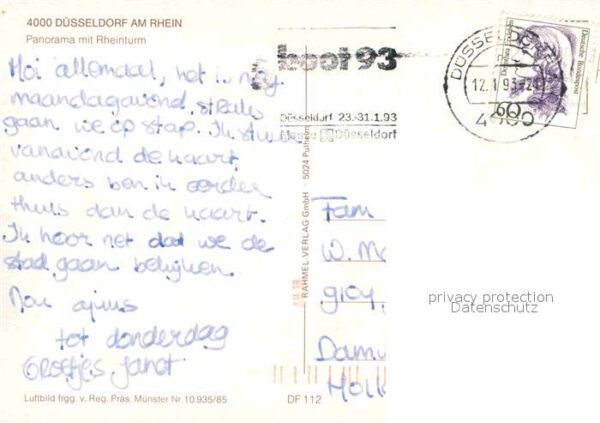 4000 DÜSSELDORF AM RHEIN
Panorama mit Rheinturm
Hoi allemaal, het is nog
maandagavond, straks
gaan we op stap. Ik stuur
vanavond de kaart
anders ben ik eerder
thuis dan de kaart.
Ik hoor net dat we de
stad gaan bekijken.
Nou ajuus
tot donderdag
Groetjes Janet
Luftbild frgg. v. Reg. Präs. Münster Nr. 10.935/85
DF 112
RAHMEL-VERLAG GmbH · 5024 Pulheim
boot 93
Düsseldorf 23.-31.1.93
Messe Düsseldorf
DÜSSELDORF
12.1.93-21
4000
Deutsche Bundespost
Fam
W. Mo
Damu
Holl
privacy protection
Datenschutz